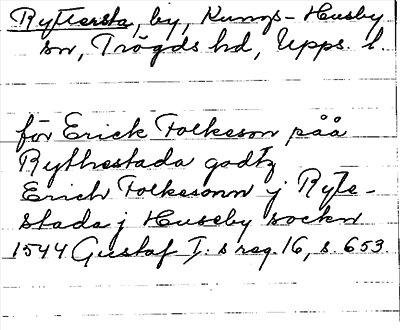 Ryttersta, by, Kungs-Husby
sn, Trögds hd, Upps. l.
för Erick Folkeson påå
Rythestada godtz
Erich Folkesonn j Ryte-
stada j Huseby sockn
1544 Gustaf I:s reg. 16, s. 653